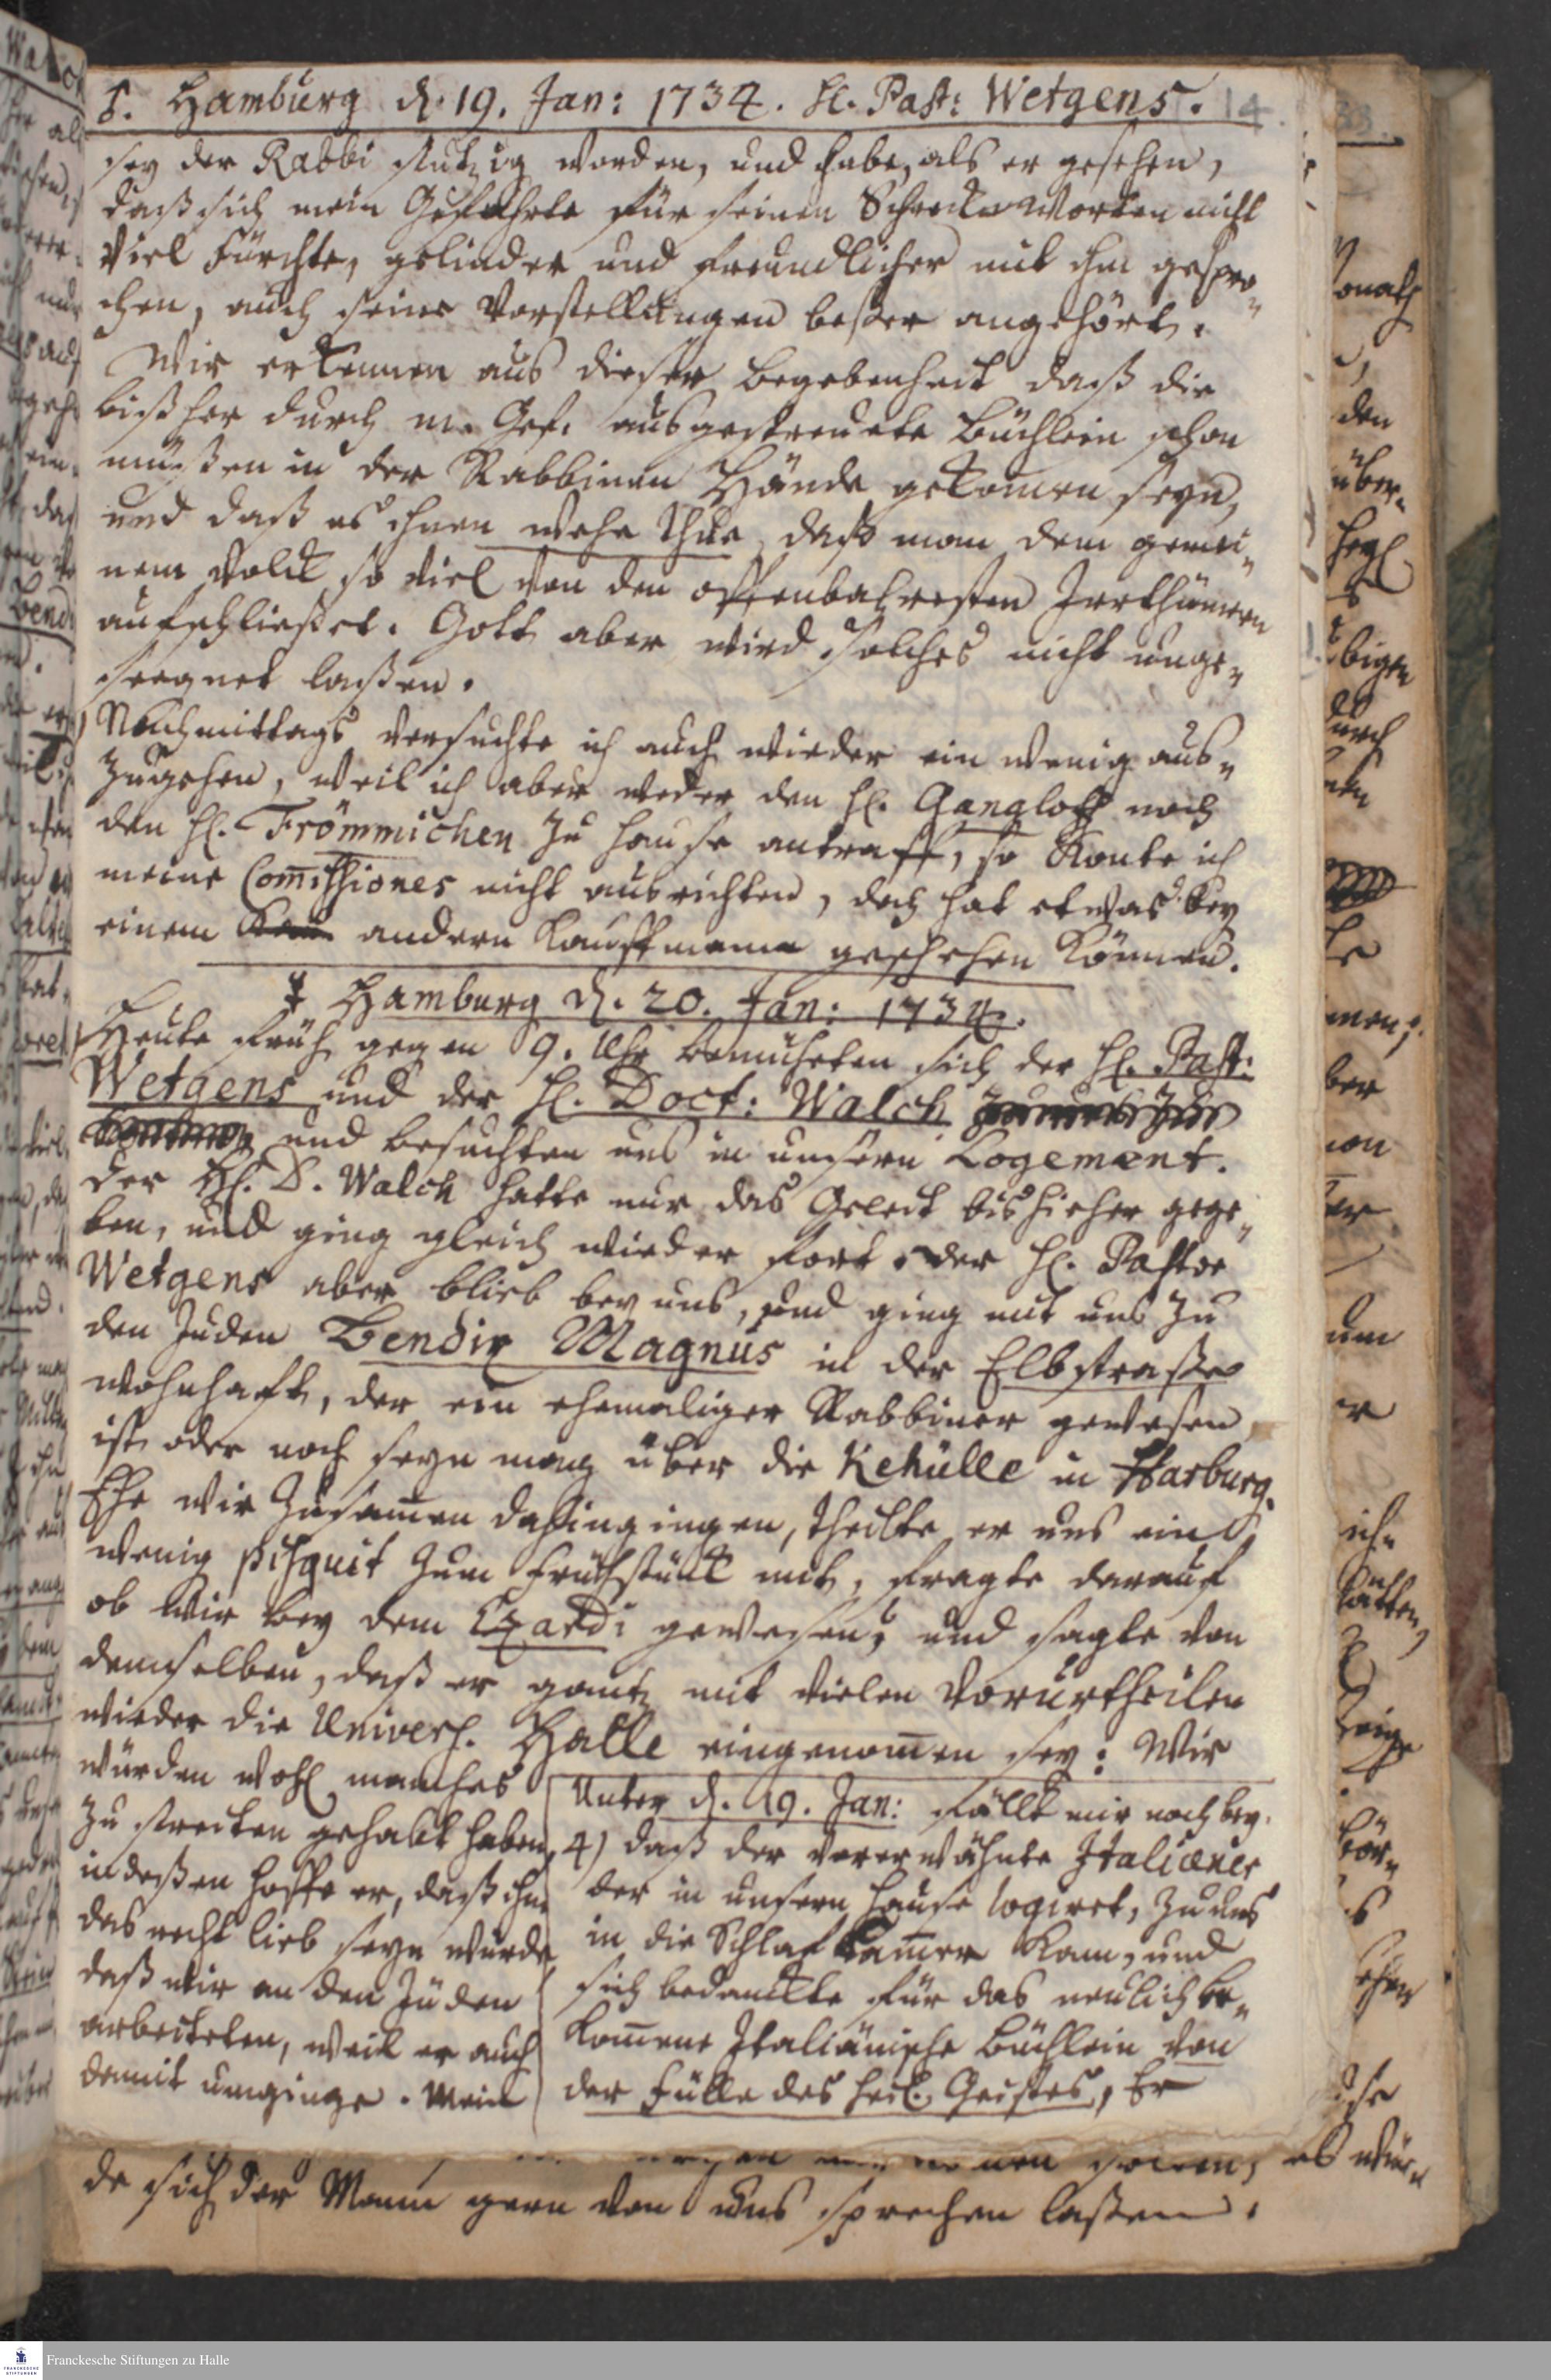 Hamburg d. 19. Jan: 1734. H. Past: Wetgens. 14.
sey der Rabbi stutzig worden, und habe, als er gesehen,
daß sich mein Gefährte für seinen Schreck Worten nicht
viel fürchte, gelinder und freundlicher mit ihm gespro-
chen, auch seine Vorstellungen beßer angehört.
Wir erkennen aus dieser Begebenheit daß die
bißher durch m. Gef. ausgestreuete Büchlein schon
müßen in der Rabbinen Hände gekomen seyn,
und daß es ihnen wehe thue, daß man dem gemei-
nem Volck so viel von den offenbahresten Irrthümern
aufschließet. Gott aber wird solches nicht unge-
seegnet laßen.
Nachmittags versuchte ich auch wieder ein wenig aus-
zugehen, weil ich aber weder den H. Gangloff noch
den H. Frömmichen zu Hause antraff, so konte ich
meine Comissiones nicht ausrichten, doch hat etwas bey
einem andern Kauffmann geschehen können.
Hamburg d. 20. Jan: 1734.
Heute früh gegen 9. Uhr bemüheten sich der H. Past:
Wetgens und der H. Doct: Walch
und besuchten uns in unserm Logement.
der H. D. Walch hatte nur das Geleit bis hieher gege-
ben, und ging gleich wieder fort. der H. Pastor
Wetgens aber blieb bey uns, und ging mit uns zu
den Juden Bendix Magnus in der Elbstraße
wohnhafft, der ein ehemaliger Rabbiner gewesen
ist oder noch seyn mag über die Kehülle in Harburg.
Ehe wir zusamen dahingingen, theilte er uns ein
wenig pisquit zum Frühstück mit, fragte darauf
ob wir bey dem Ezardi gewesen; und sagte von
demselben, daß er gantz mit vielen Vorurtheilen
wieder die Univers. Halle eingenomen sey: Wir
würden wohl manches
zu streiten gehabt haben,
indeßen hoffe er, daß ihm
das recht lieb seyn würde
daß wir an den Jüden
arbeiteten, weil er auch
damit umginge. Weil
Unter d. 19. Jan: fällt mir noch bey.
4) daß der vorerwähnte Italiæner
der in unserm Hause logiret, zu uns
in die Schlafkamer kam, und
sich bedanckte für das neulich be-
komene Italiänische Büchlein von
der Fülle des Heil. Geistes, Er
de sich der Mann gern von uns sprechen laßen.
Franckesche Stiftungen zu Halle